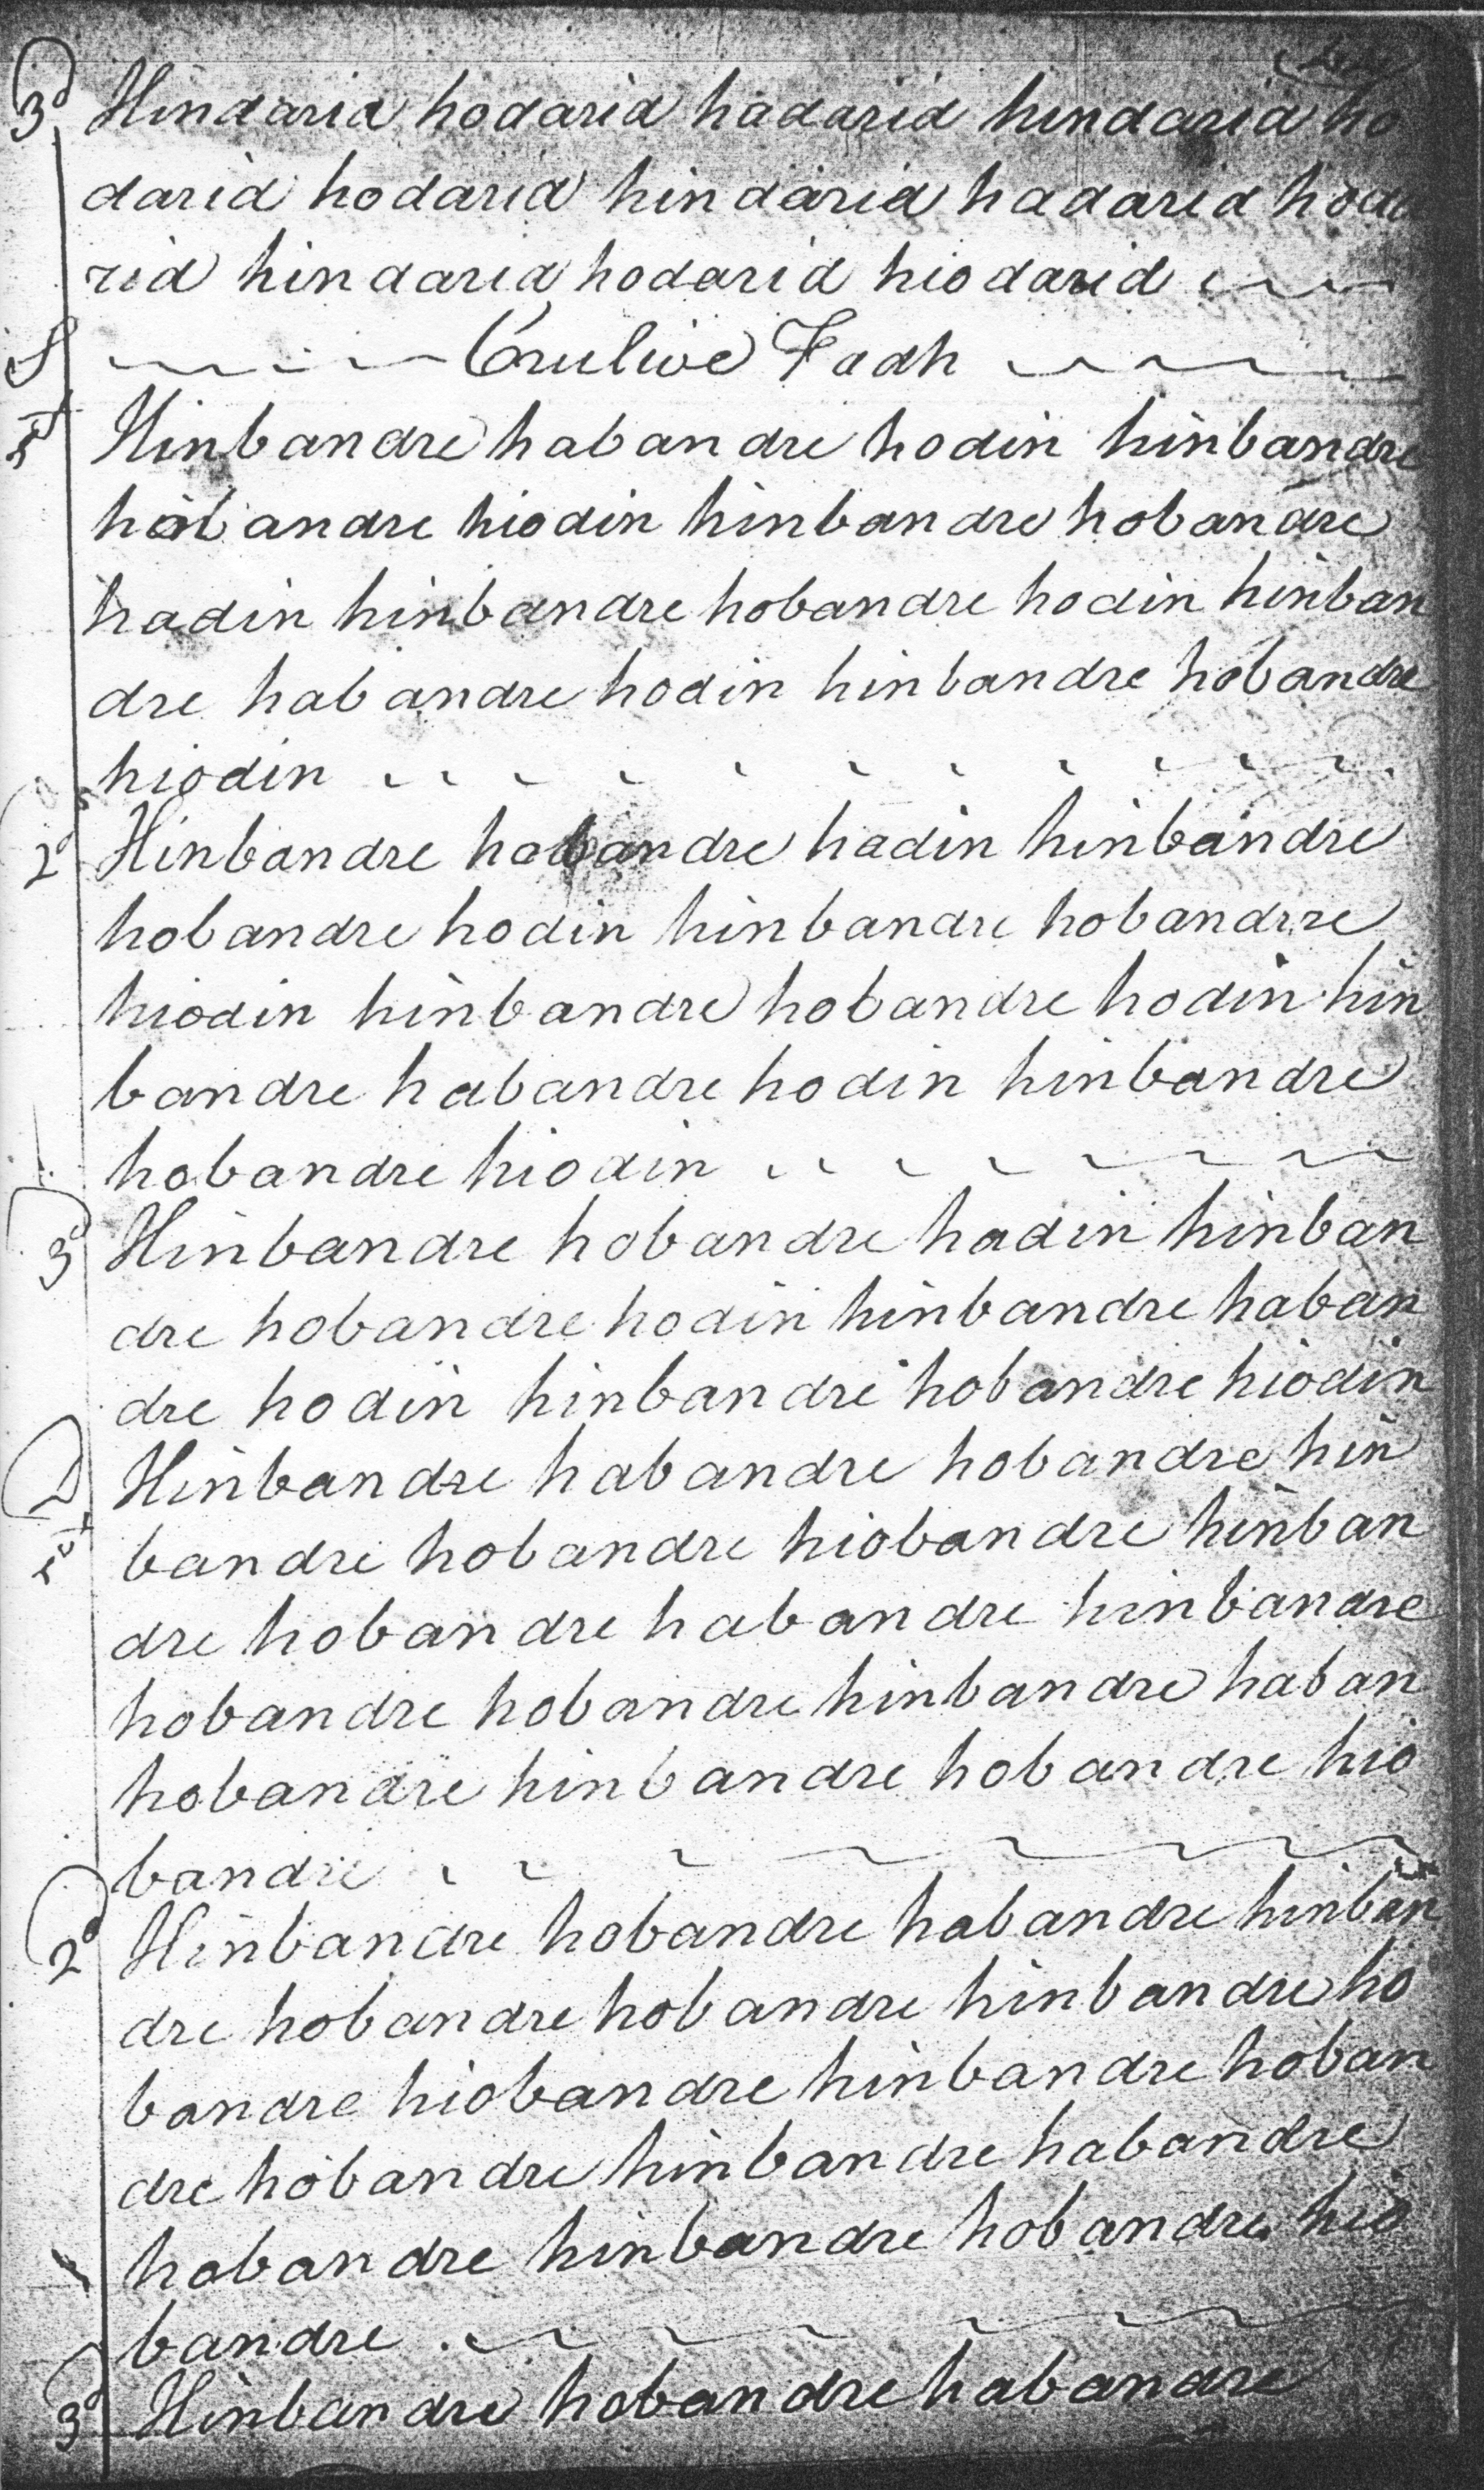 3d Hindaria hodarid hadarid hindaria ho
darid hodarid hindarid hadarid hoda
rid hindarid hodarid hiodarid
S Crulive Fadh
1st Hinbandre habandre hodin hinbandre
hobandre hiodin hinbandre hobandre
hadin hinbandre hobandre hodin hinban
dre habandre hodin hinbandre hobandre
hiodin
2d Hinbandre habandre hadin hinbandre
hobandre hodin hinbandre hobandrre
hiodin hinbandre hobandre hodin hin
bandre habandre hodin hinbandre
hobandre hiodin
3d Hinbandre hobandre hadin hinban
dre hobandre hodin hinbandre haban
dre hodin hinbandre hobandre hiodin
D 1st Hinbandre habandre hobandre hin
bandre hobandre hiobandre hinban
dre hobandre habandre hinbandre
hobandre hobandre hinbandre haban
hobandre hinbandre hobandre hio
bandre
2d Hinbandre hobandre habandre hinban
dre hobandre hobandre hinbandre ho
bandre hiobandre hinbandre hoban
dre hobandre hinbandre habandre
hobandre hinbandre hobandre hio
bandre
3d Hinbandre hobandre habandre